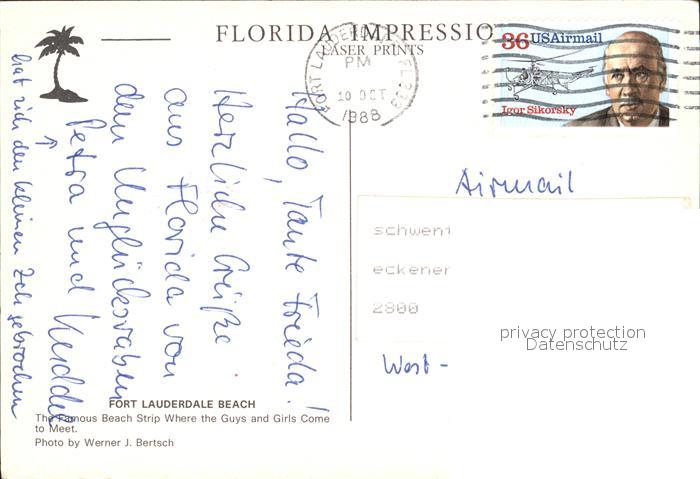 FLORIDA IMPRESSIO
LASER PRINTS
FORT LAUDERD
FL 333
PM
10 OCT
1988
36 USAirmail
Igor Sikorsky
Hallo, Tante Frieda!
Herzliche Grüße
aus Florida von
den Unglücksraben
Petra und
hat sich den kleinen Zeh gebrochen
Airmail
schwent
eckener
2800
West-
privacy protection
Datenschutz
FORT LAUDERDALE BEACH
The Famous Beach Strip Where the Guys and Girls Come
to Meet.
Photo by Werner J. Bertsch